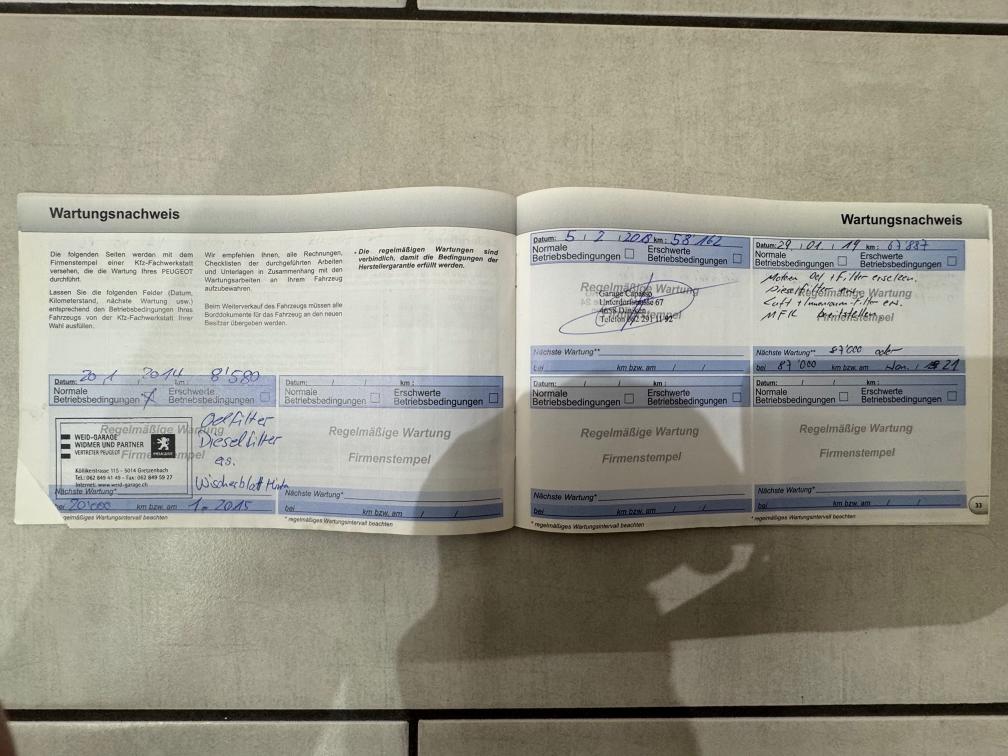 Wartungsnachweis
Die folgenden Seiten werden mit dem
Firmenstempel einer Kfz-Fachwerkstatt
versehen, die die Wartung Ihres PEUGEOT
durchführt.
Lassen Sie die folgenden Felder (Datum,
Kilometerstand, nächste Wartung usw.)
entsprechend den Betriebsbedingungen Ihres
Fahrzeugs von der Kfz-Fachwerkstatt Ihrer
Wahl ausfüllen.
Wir empfehlen Ihnen, alle Rechnungen,
Checklisten der durchgeführten Arbeiten
und Unterlagen in Zusammenhang mit den
Wartungsarbeiten an Ihrem Fahrzeug
aufzubewahren.
Beim Weiterverkauf des Fahrzeugs müssen alle
Borddokumente für das Fahrzeug an den neuen
Besitzer übergeben werden.
- Die regelmäßigen Wartungen sind
verbindlich, damit die Bedingungen der
Herstellergarantie erfüllt werden.
Datum: 20 / 1 / 2014 km : 8'580
Normale Erschwerte
Betriebsbedingungen X Betriebsbedingungen
Regelmäßige Wartung
Firmenstempel
WEID-GARAGE
WIDMER UND PARTNER
VERTRETER PEUGEOT
PEUGEOT
Köllikerstrasse 115 - 5014 Gretzenbach
Tel.: 062 849 41 49 - Fax: 062 849 59 27
Internet: www.weid-garage.ch
Oelfilter
Dieselfilter
es.
Wischerblatt Hinten
Nächste Wartung*
bei 20'000 km bzw. am 1. 2015
* regelmäßiges Wartungsintervall beachten
Datum: / / km :
Normale Erschwerte
Betriebsbedingungen Betriebsbedingungen
Regelmäßige Wartung
Firmenstempel
Nächste Wartung*
bei km bzw. am / /
* regelmäßiges Wartungsintervall beachten
Wartungsnachweis
Datum: 5 / 2 / 2018 km : 58'162
Normale Erschwerte
Betriebsbedingungen Betriebsbedingungen
Regelmäßige Wartung
Firmenstempel
Garage Capasso
Unterdorfstrasse 67
4658 Däniken
Telefon 062 291 11 92
Nächste Wartung**
bei km bzw. am / /
Datum: 29 / 01 / 19 km : 67'887
Normale Erschwerte
Betriebsbedingungen Betriebsbedingungen
Regelmäßige Wartung
Firmenstempel
Motoren Oel + Filter ersetzen.
Dieselfilter ers.
Luft + Innenraum-Filter ers.
MFK bereitstellen.
Nächste Wartung** 87'000 oder
bei 87'000 km bzw. am 21
Datum: / / km :
Normale Erschwerte
Betriebsbedingungen Betriebsbedingungen
Regelmäßige Wartung
Firmenstempel
Nächste Wartung*
bei km bzw. am / /
* regelmäßiges Wartungsintervall beachten
Datum: / / km :
Normale Erschwerte
Betriebsbedingungen Betriebsbedingungen
Regelmäßige Wartung
Firmenstempel
Nächste Wartung*
bei km bzw. am / /
* regelmäßiges Wartungsintervall beachten
33